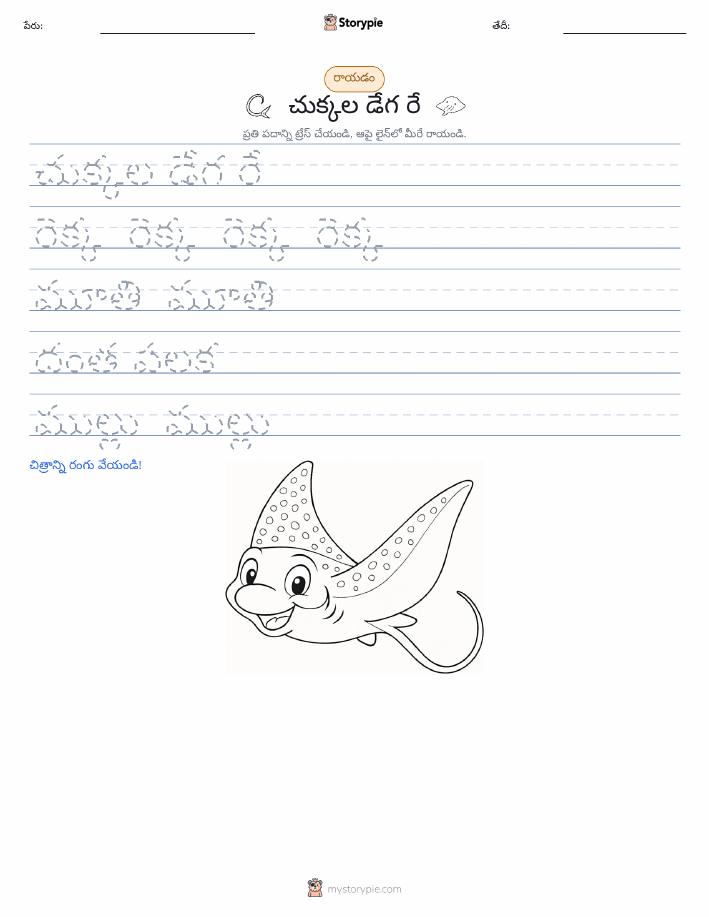 పేరు:
Storypie
తేదీ:
రాయడం
చుక్కల డేగ రే
ప్రతి పదాన్ని ట్రేస్ చేయండి, ఆపై లైన్‌లో మీరే రాయండి.
చుక్కల డేగ రే
రెక్క రెక్క రెక్క రెక్క
మూతి మూతి
దంత పలక
ముల్లు ముల్లు
చిత్రాన్ని రంగు వేయండి!
mystorypie.com